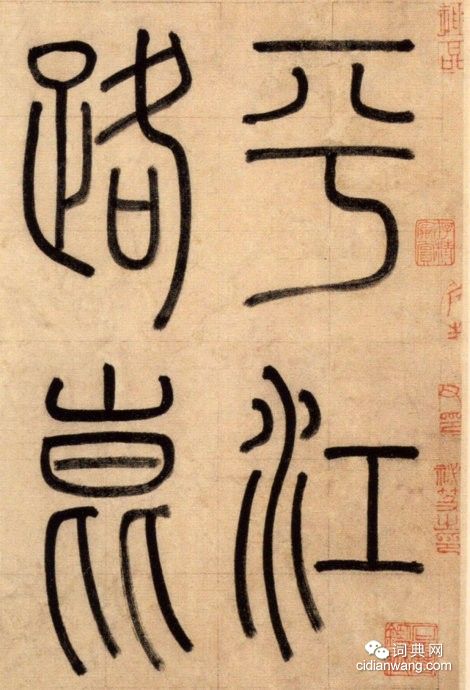 平江
路崑
词典网
cidianwang.com